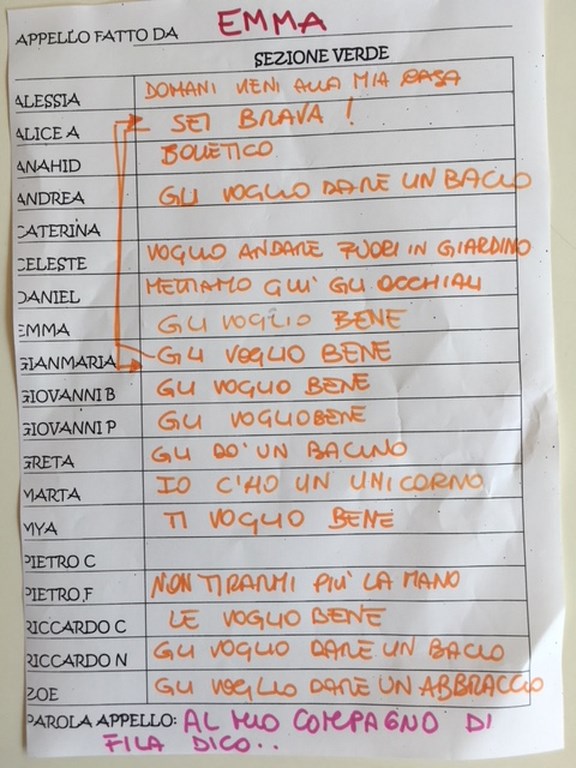 APPELLO FATTO DA EMMA
SEZIONE VERDE
ALESSIA DOMANI VIENI ALLA MIA CASA
ALICE A SEI BRAVA !
ANAHID
ANDREA GLI VOGLIO DARE UN BACIO
CATERINA
CELESTE VOGLIO ANDARE FUORI IN GIARDINO
DANIEL METTIAMO QUI' GLI OCCHIALI
EMMA GLI VOGLIO BENE
GIANMARIA GLI VOGLIO BENE
GIOVANNI B GLI VOGLIO BENE
GIOVANNI P GLI VOGLIO BENE
GRETA GLI DO' UN BACINO
MARTA IO C'HO UN UNICORNO
MYA TI VOGLIO BENE
PIETRO C
PIETRO F NON TIRARMI PIU' LA MANO
RICCARDO C LE VOGLIO BENE
RICCARDO N GLI VOGLIO DARE UN BACIO
ZOE GLI VOGLIO DARE UN ABBRACCIO
PAROLA APPELLO: AL MIO COMPAGNO DI
FILA DICO..